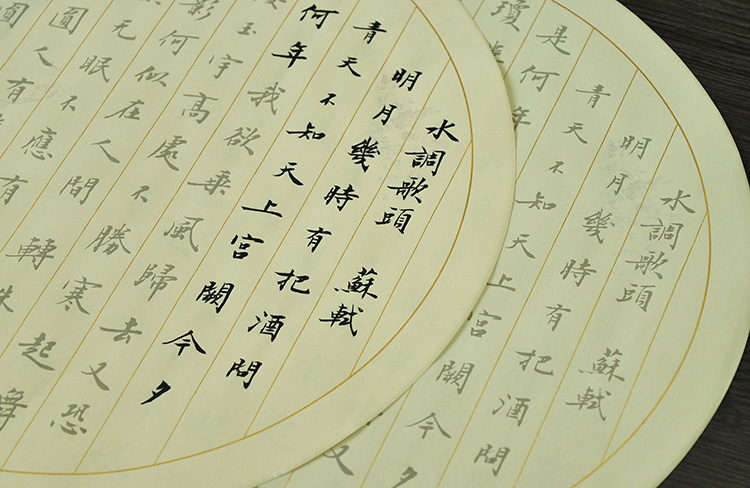 水調歌頭 蘇軾
明月幾時有把酒問
青天不知天上宮闕今夕
何年我欲乘風歸去又恐
玉宇高處不勝寒起舞
影何似在人間轉朱
无眠不應有
圓人有
水調歌頭 蘇軾
明月幾時有把酒問
青天不知天上宮闕今夕
是何年又
瓊